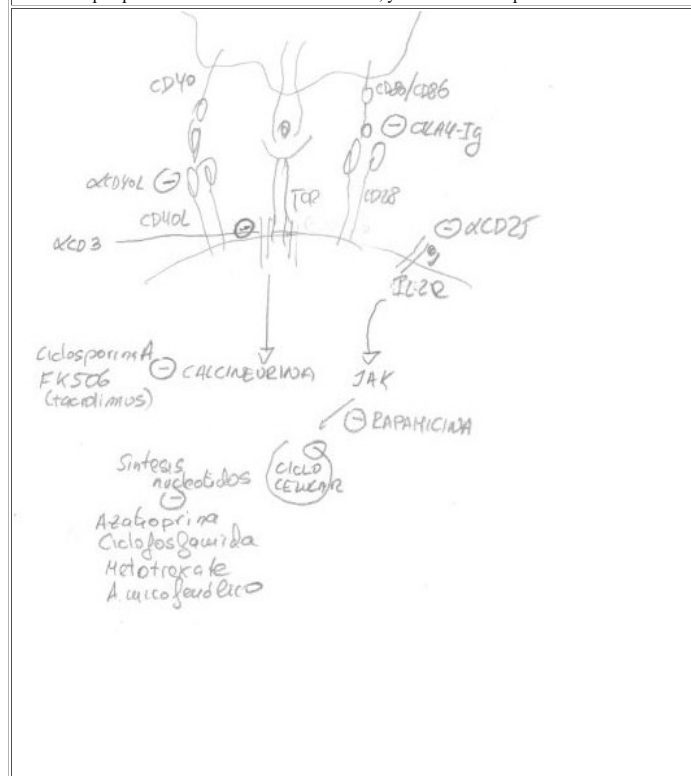 CD40
CD80/CD86
CTLA4-Ig
αCD40L
CD40L
TCR
CD28
αCD3
αCD25
IL-2R
Ciclosporina A
FK506
(tacrolimus)
CALCINEURINA
JAK
RAPAMICINA
Sintesis
nucleotidos
CICLO
CELULAR
Azatioprina
Ciclofosfamida
Metotrexate
A. micofenólico